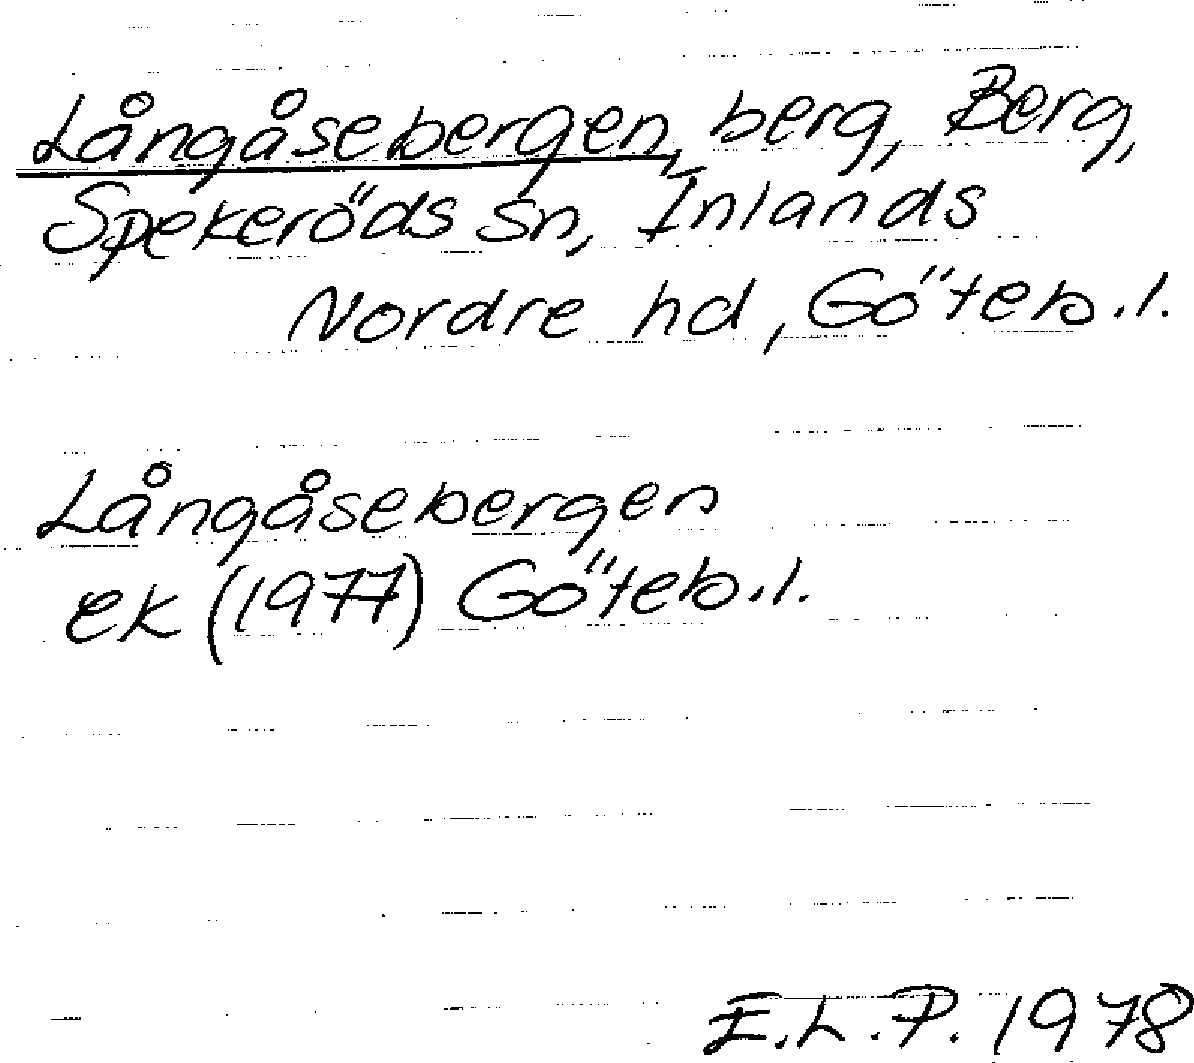 Långåsebergen, berg, Berg,
Spekeröds sn, Inlands
Nordre hd, Göteb.l.
Långåsebergen
ek (1977) Göteb.l.
E.L.P. 1978